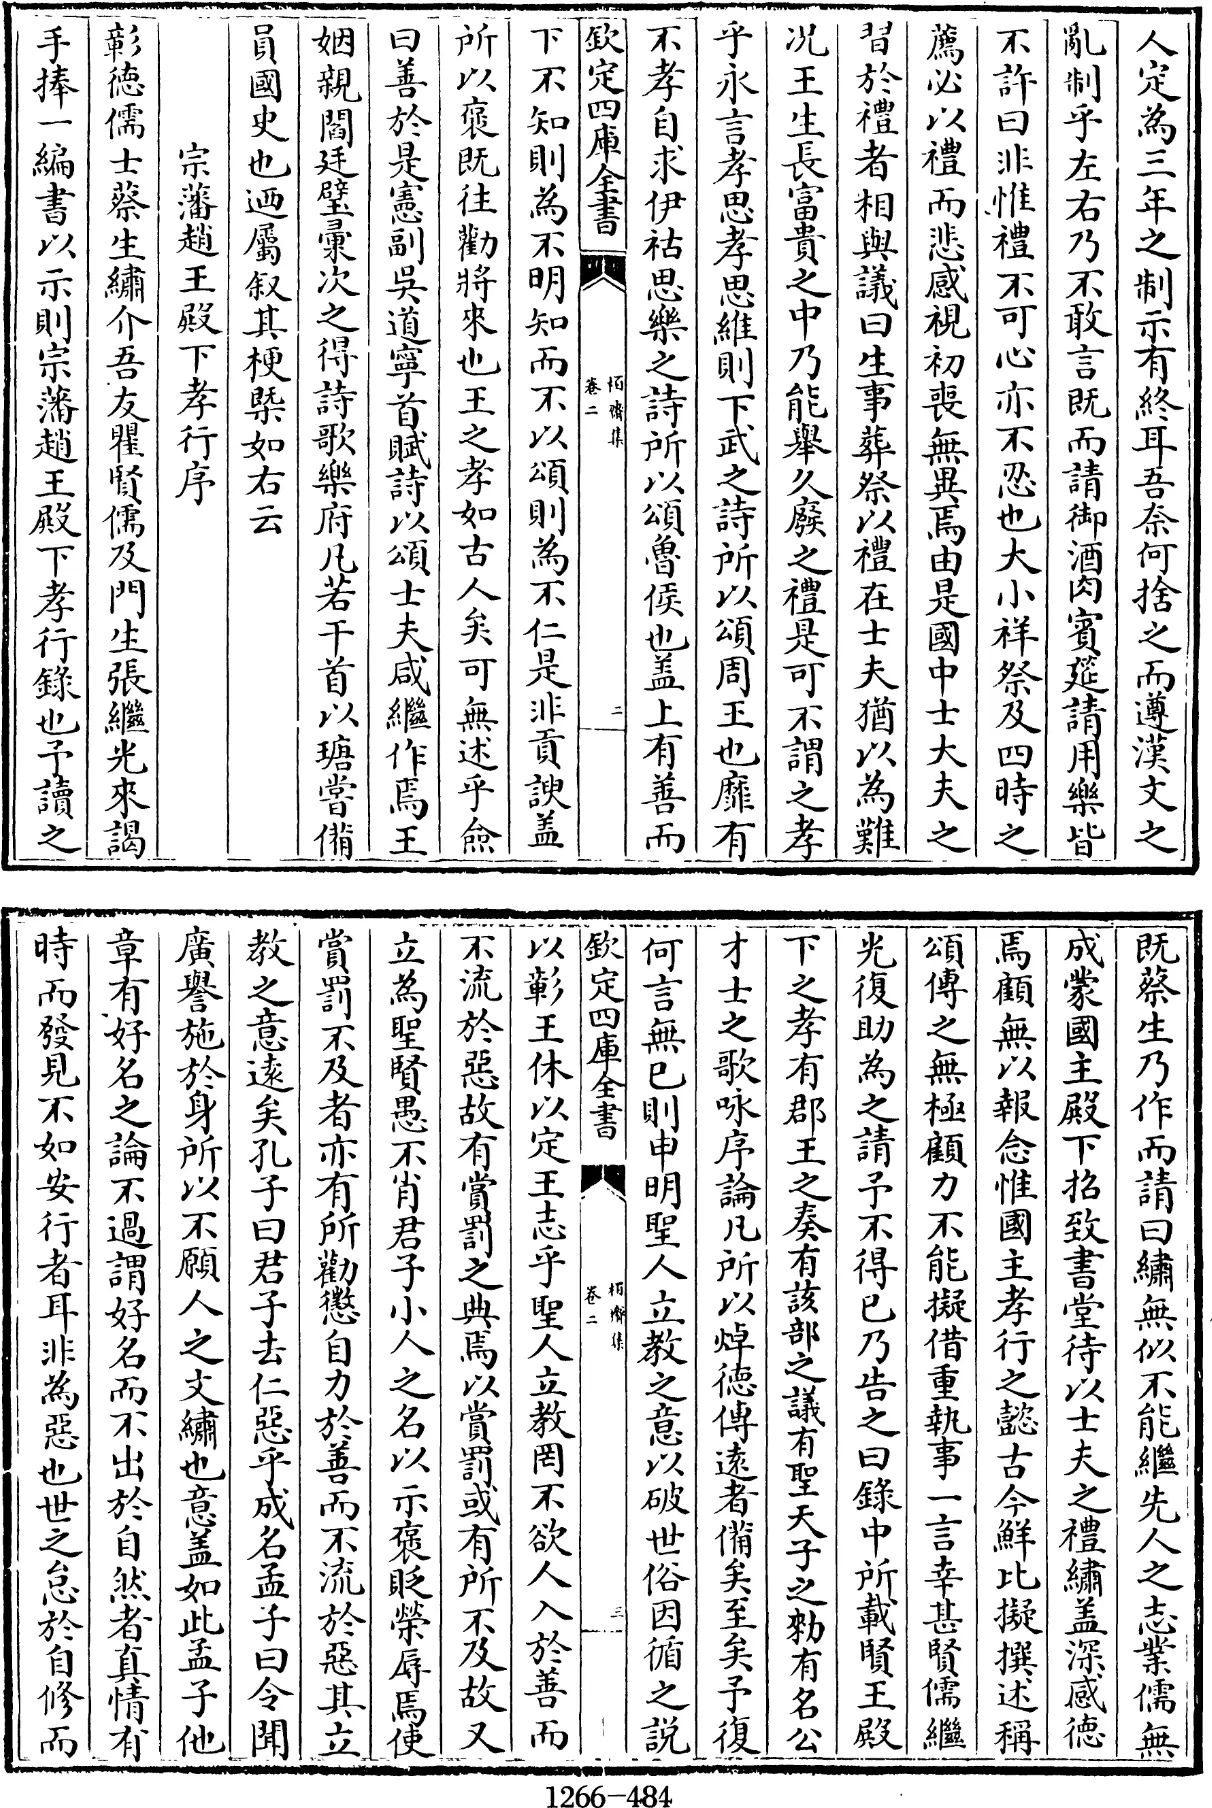 人定為三年之制示有終耳吾奈何捨之而遵漢文之
亂制乎左右乃不敢言既而請御酒肉賓筵請用樂皆
不許曰非惟禮不可心亦不忍也大小祥祭及四時之
薦必以禮而悲感視初喪無異焉由是國中士大夫之
習於禮者相與議曰生事葬祭以禮在士夫猶以為難
况王生長富貴之中乃能舉久廢之禮是可不謂之孝
乎永言孝思孝思維則下武之詩所以頌周王也靡有
不孝自求伊祜思樂之詩所以頌魯侯也盖上有善而
欽定四庫全書
栢齋集
卷二
二
下不知則為不明知而不以頌則為不仁是非貢諛盖
所以褒既往勸將來也王之孝如古人矣可無述乎僉
曰善於是憲副吳道寧首賦詩以頌士夫咸繼作焉王
姻親閻廷璧彚次之得詩歌樂府凡若干首以瑭嘗備
員國史也迺屬叙其梗槩如右云
宗藩趙王殿下孝行序
彰德儒士蔡生繡介吾友瞿賢儒及門生張繼光來謁
手捧一編書以示則宗藩趙王殿下孝行錄也予讀之
既蔡生乃作而請曰繡無似不能繼先人之志業儒無
成蒙國主殿下招致書堂待以士夫之禮繡盖深感德
焉顧無以報念惟國主孝行之懿古今鮮比擬撰述稱
頌傳之無極顧力不能擬借重執事一言幸甚賢儒繼
光復助為之請予不得已乃告之曰錄中所載賢王殿
下之孝有郡王之奏有該部之議有聖天子之勑有名公
才士之歌咏序論凡所以焯德傳遠者備矣至矣予復
何言無已則申明聖人立教之意以破世俗因循之説
欽定四庫全書
栢齋集
卷二
三
以彰王休以定王志乎聖人立教罔不欲人入於善而
不流於惡故有賞罰之典焉以賞罰或有所不及故又
立為聖賢愚不肖君子小人之名以示褒貶榮辱焉使
賞罰不及者亦有所勸懲自力於善而不流於惡其立
教之意遠矣孔子曰君子去仁惡乎成名孟子曰令聞
廣譽施於身所以不願人之文繡也意盖如此孟子他
章有好名之論不過謂好名而不出於自然者真情有
時而發見不如安行者耳非為惡也世之怠於自修而
1266-484